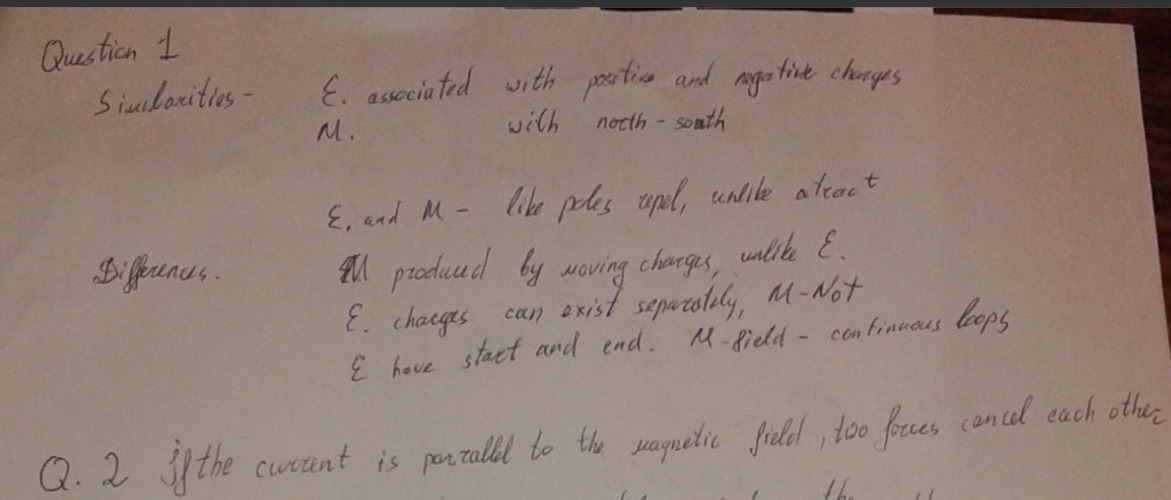 Question 1
Similarities - E. associated with positive and negative charges
M. with north - south
E, and M - like poles repel, unlike atract
Differences. M produced by moving charges, unlike E.
E. charges can exist separately, M-Not
E have start and end. M-field - continuous loops
Q. 2 If the current is parallel to the magnetic field, two forces cancel each other